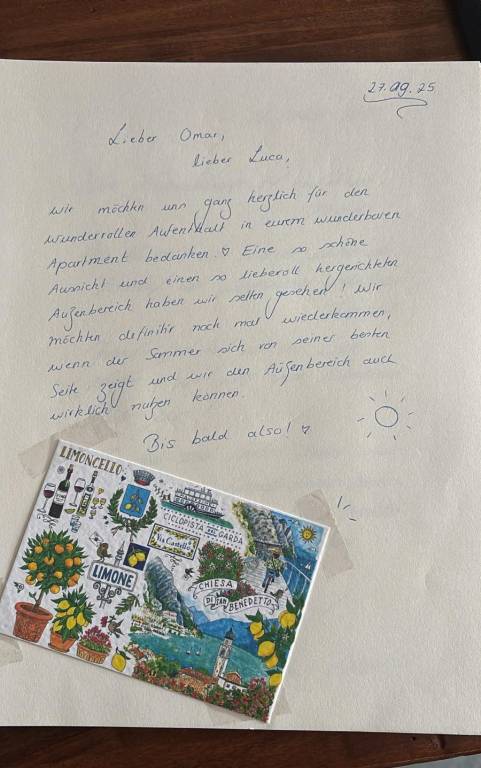 27.09.25
Lieber Omar,
lieber Luca,
wir möchten uns ganz herzlich für den
wundervollen Aufenthalt in eurem wunderbaren
Apartment bedanken. ♡ Eine so schöne
Aussicht und einen so liebevoll hergerichteten
Außenbereich haben wir selten gesehen! Wir
möchten definitiv noch mal wiederkommen,
wenn der Sommer sich von seiner besten
Seite zeigt und wir den Außenbereich auch
wirklich nutzen können.
Bis bald also! ♡
LIMONCELLO
CICLOPISTA DEL GARDA
Via Castello
LIMONE
CHIESA
DI SAN
BENEDETTO